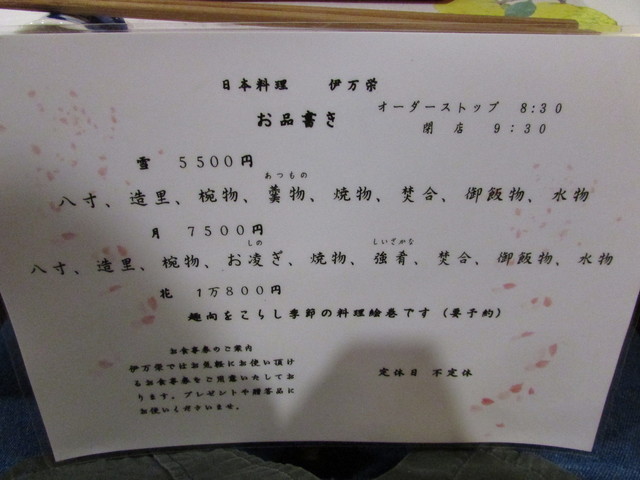 日本料理　伊万栄
お品書き
オーダーストップ 8:30
閉店 9:30
雪 5500円
あつもの
八寸、造里、椀物、羹物、焼物、焚合、御飯物、水物
月 7500円
しの しいざかな
八寸、造里、椀物、お凌ぎ、焼物、強肴、焚合、御飯物、水物
花 1万800円
趣向をこらし季節の料理絵巻です（要予約）
お食事券のご案内
伊万栄ではお気軽にお使い頂け
るお食事券をご用意いたしてお
ります。プレゼントや贈答品に
お使いくださいませ。
定休日 不定休